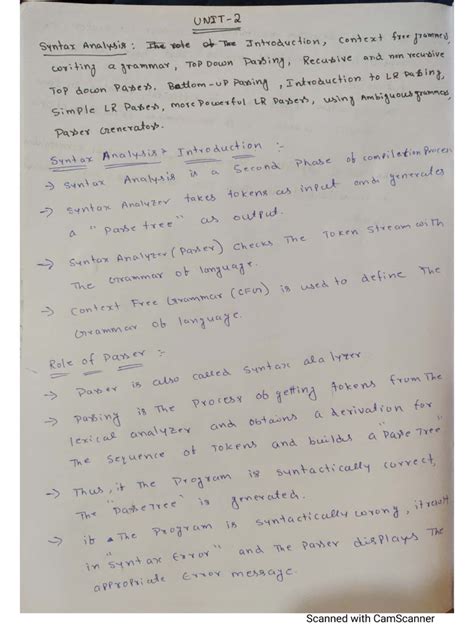 UNIT-2
Syntax Analysis: The role of The Introduction, context free grammers,
writing a grammar, TOP DOWN Parsing, Recursive and non recursive
TOP down Parsers. Bottom-UP Parsing, Introduction to LR Parsing,
Simple LR Parsers, more Powerful LR Parsers, using Ambiguous grammars,
Parser Generators.
Syntax Analysis: Introduction :-
→ Syntax Analysis is a Second Phase of compilation Process
→ Syntax Analyzer takes tokens as input and generates
a "Parse tree" as output.
→ Syntax Analyzer (Parser) Checks The Token Stream with
The Grammar of language.
→ Context Free Grammar (CFG) is used to define The
Grammar of language.
Role of Parser :-
→ Parser is also called Syntax alalyzer
→ Parsing is The Process of getting tokens from The
lexical analyzer and obtains a derivation for
The Sequence of Tokens and builds a "Parse Tree"
→ Thus, if The Program is syntactically correct,
The "Parse Tree" is generated.
→ if The Program is syntactically worong, it result
in "Syntax Error" and The Parser displays The
appropriate Error message.
Scanned with CamScanner